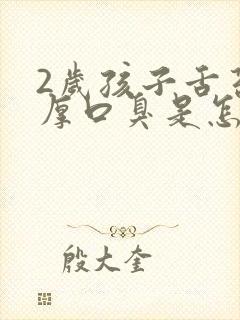 2岁孩子舌
厚口臭是怎
殷大奎